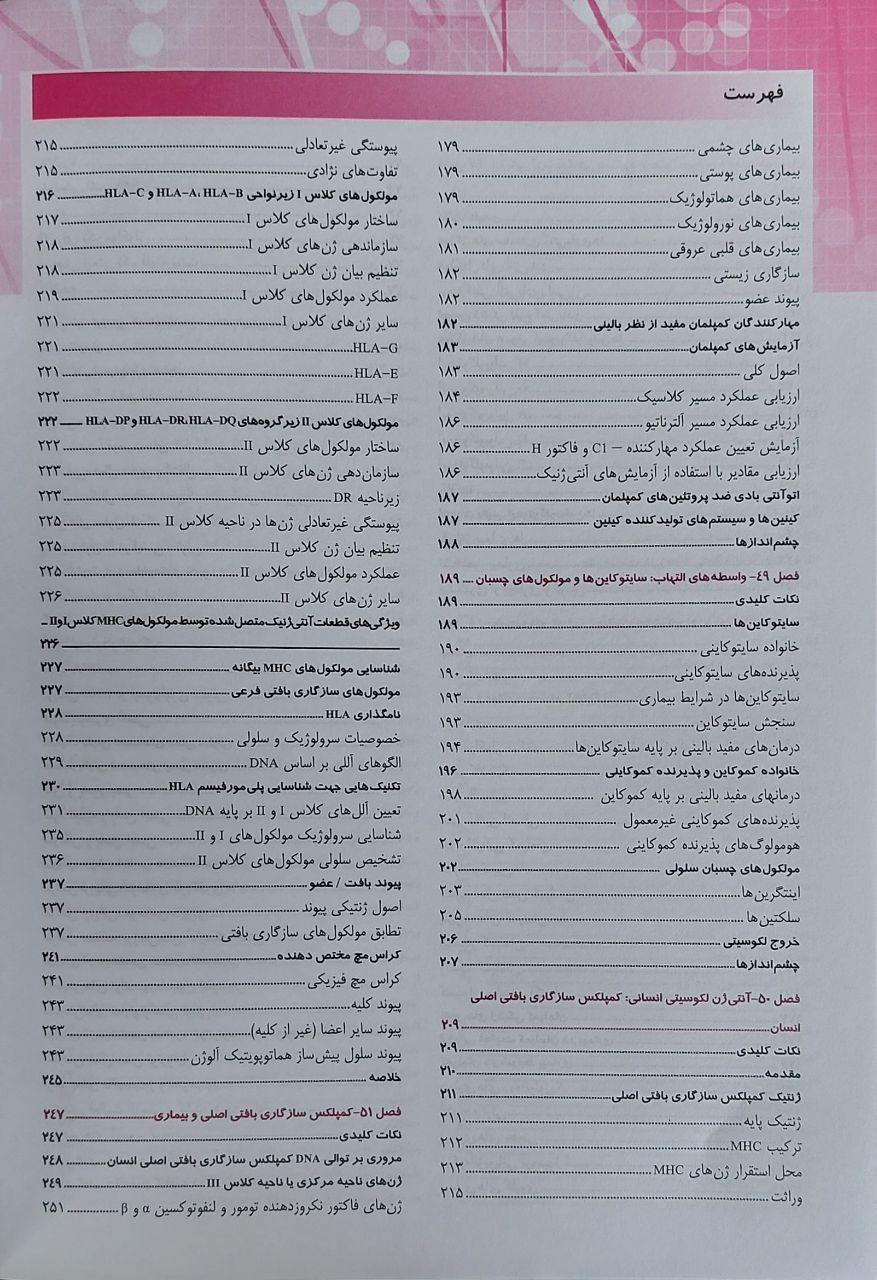 فهرست
بیماری‌های چشمی ۱۷۹
بیماری‌های پوستی ۱۷۹
بیماری‌های هماتولوژیک ۱۷۹
بیماری‌های نورولوژیک ۱۸۰
بیماری‌های قلبی عروقی ۱۸۱
سازگاری زیستی ۱۸۲
پیوند عضو ۱۸۲
مهارکنندگان کمپلمان مفید از نظر بالینی ۱۸۲
آزمایش‌های کمپلمان ۱۸۳
اصول کلی ۱۸۳
ارزیابی عملکرد مسیر کلاسیک ۱۸۴
ارزیابی عملکرد مسیر آلترناتیو ۱۸۶
آزمایش تعیین عملکرد مهارکننده – C1 و فاکتور H ۱۸۶
ارزیابی مقادیر با استفاده از آزمایش‌های آنتی‌ژنیک ۱۸۶
اتوآنتی بادی ضد پروتئین‌های کمپلمان ۱۸۷
کینین‌ها و سیستم‌های تولیدکننده کینین ۱۸۷
چشم‌اندازها ۱۸۸
فصل ۴۹- واسطه‌های التهاب: سایتوکاین‌ها و مولکول‌های چسبان ۱۸۹
نکات کلیدی ۱۸۹
سایتوکاین‌ها ۱۸۹
خانواده سایتوکاینی ۱۹۰
پذیرنده‌های سایتوکاینی ۱۹۰
سایتوکاین‌ها در شرایط بیماری ۱۹۳
سنجش سایتوکاین ۱۹۳
درمان‌های مفید بالینی بر پایه سایتوکاین‌ها ۱۹۴
خانواده کموکاین و پذیرنده کموکاینی ۱۹۶
درمانهای مفید بالینی بر پایه کموکاین ۱۹۸
پذیرنده‌های کموکاینی غیرمعمول ۲۰۱
هومولوگ‌های پذیرنده کموکاینی ۲۰۲
مولکول‌های چسبان سلولی ۲۰۲
اینتگرین‌ها ۲۰۳
سلکتین‌ها ۲۰۵
خروج لکوسیتی ۲۰۶
چشم‌اندازها ۲۰۷
فصل ۵۰-آنتی‌ژن لکوسیتی انسانی: کمپلکس سازگاری بافتی اصلی
انسان ۲۰۹
نکات کلیدی ۲۰۹
مقدمه ۲۱۰
ژنتیک کمپلکس سازگاری بافتی اصلی ۲۱۱
ژنتیک پایه ۲۱۱
ترکیب MHC ۲۱۲
محل استقرار ژن‌های MHC ۲۱۳
وراثت ۲۱۵
پیوستگی غیرتعادلی ۲۱۵
تفاوت‌های نژادی ۲۱۵
مولکول‌های کلاس I زیرنواحی HLA-A، HLA-B و HLA-C ۲۱۶
ساختار مولکول‌های کلاس I ۲۱۷
سازماندهی ژن‌های کلاس I ۲۱۸
تنظیم بیان ژن کلاس I ۲۱۸
عملکرد مولکول‌های کلاس I ۲۱۹
سایر ژن‌های کلاس I ۲۲۱
HLA-G ۲۲۱
HLA-E ۲۲۱
HLA-F ۲۲۲
مولکول‌های کلاس II زیرگروه‌های HLA-DR، HLA-DQ و HLA-DP ۲۲۲
ساختار مولکول‌های کلاس II ۲۲۲
سازمان‌دهی ژن‌های کلاس II ۲۲۳
زیرناحیه DR ۲۲۳
پیوستگی غیرتعادلی ژن‌ها در ناحیه کلاس II ۲۲۵
تنظیم بیان ژن کلاس II ۲۲۵
عملکرد مولکول‌های کلاس II ۲۲۵
سایر ژن‌های کلاس II ۲۲۶
ویژگی‌های قطعات آنتی‌ژنیک متصل شده توسط مولکول‌های MHC کلاس I و II
۲۲۶
شناسایی مولکول‌های MHC بیگانه ۲۲۷
مولکول‌های سازگاری بافتی فرعی ۲۲۷
نامگذاری HLA ۲۲۸
خصوصیات سرولوژیک و سلولی ۲۲۸
الگوهای آللی بر اساس DNA ۲۲۹
تکنیک‌هایی جهت شناسایی پلی‌مورفیسم HLA ۲۳۰
تعیین آلل‌های کلاس I و II بر پایه DNA ۲۳۱
شناسایی سرولوژیک مولکول‌های I و II ۲۳۵
تشخیص سلولی مولکول‌های کلاس II ۲۳۶
پیوند بافت / عضو ۲۳۷
اصول ژنتیکی پیوند ۲۳۷
تطابق مولکول‌های سازگاری بافتی ۲۳۷
کراس مچ مختص دهنده ۲۴۱
کراس مچ فیزیکی ۲۴۱
پیوند کلیه ۲۴۳
پیوند سایر اعضا (غیر از کلیه) ۲۴۳
پیوند سلول پیش‌ساز هماتوپویتیک آلوژن ۲۴۳
خلاصه ۲۴۵
فصل ۵۱-کمپلکس سازگاری بافتی اصلی و بیماری ۲۴۷
نکات کلیدی ۲۴۷
مروری بر توالی DNA کمپلکس سازگاری بافتی اصلی انسان ۲۴۸
ژن‌های ناحیه مرکزی یا ناحیه کلاس III ۲۴۹
ژن‌های فاکتور نکروزدهنده تومور و لنفوتوکسین α و β ۲۵۱